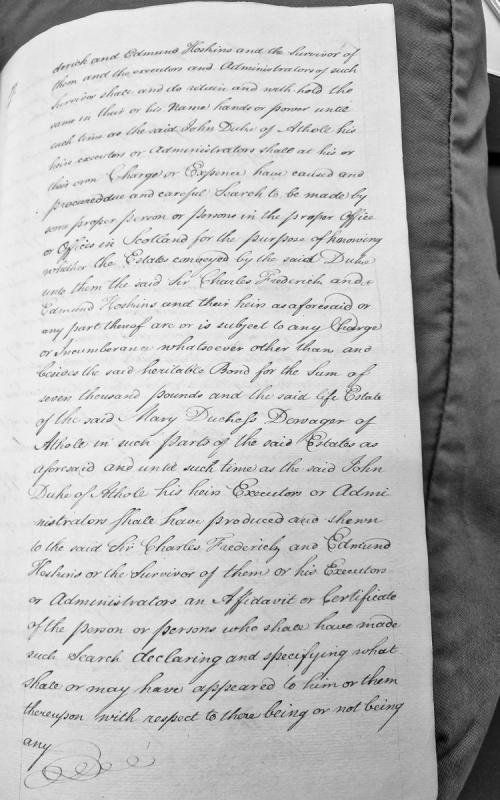 derick and Edmund Hoskins and the Survivor of
them and the executors and Administrators of such
Survivor shall and do retain and with hold the
same in their or his Name hands or power until
such time as the said John Duke of Atholl his
heirs executors or Administrators shall at his or
their own Charge or Expence have caused and
procured due and careful Search to be made by
some proper person or persons in the proper Office
or Offices in Scotland for the purpose of knowing
whether the Estates conveyed by the said Duke
unto them the said Sir Charles Frederick and
Edmund Hoskins and their heirs as aforesaid or
any part thereof are or is subject to any Charge
or Incumberance whatsoever other than and
besides the said heritable Bond for the Sum of
seven thousand pounds and the said life Estate
of the said Mary Duchess Dowager of
Atholl in such parts of the said Estates as
aforesaid and until such time as the said John
Duke of Atholl his heirs Executors or Admi
nistrators shall have produced and shewn
to the said Sir Charles Frederick and Edmund
Hoskins or the Survivor of them or his Executors
or Administrators an Affidavit or Certificate
of the person or persons who shall have made
such Search declaring and specifying what
shall or may have appeared to him or them
thereupon with respect to there being or not being
any